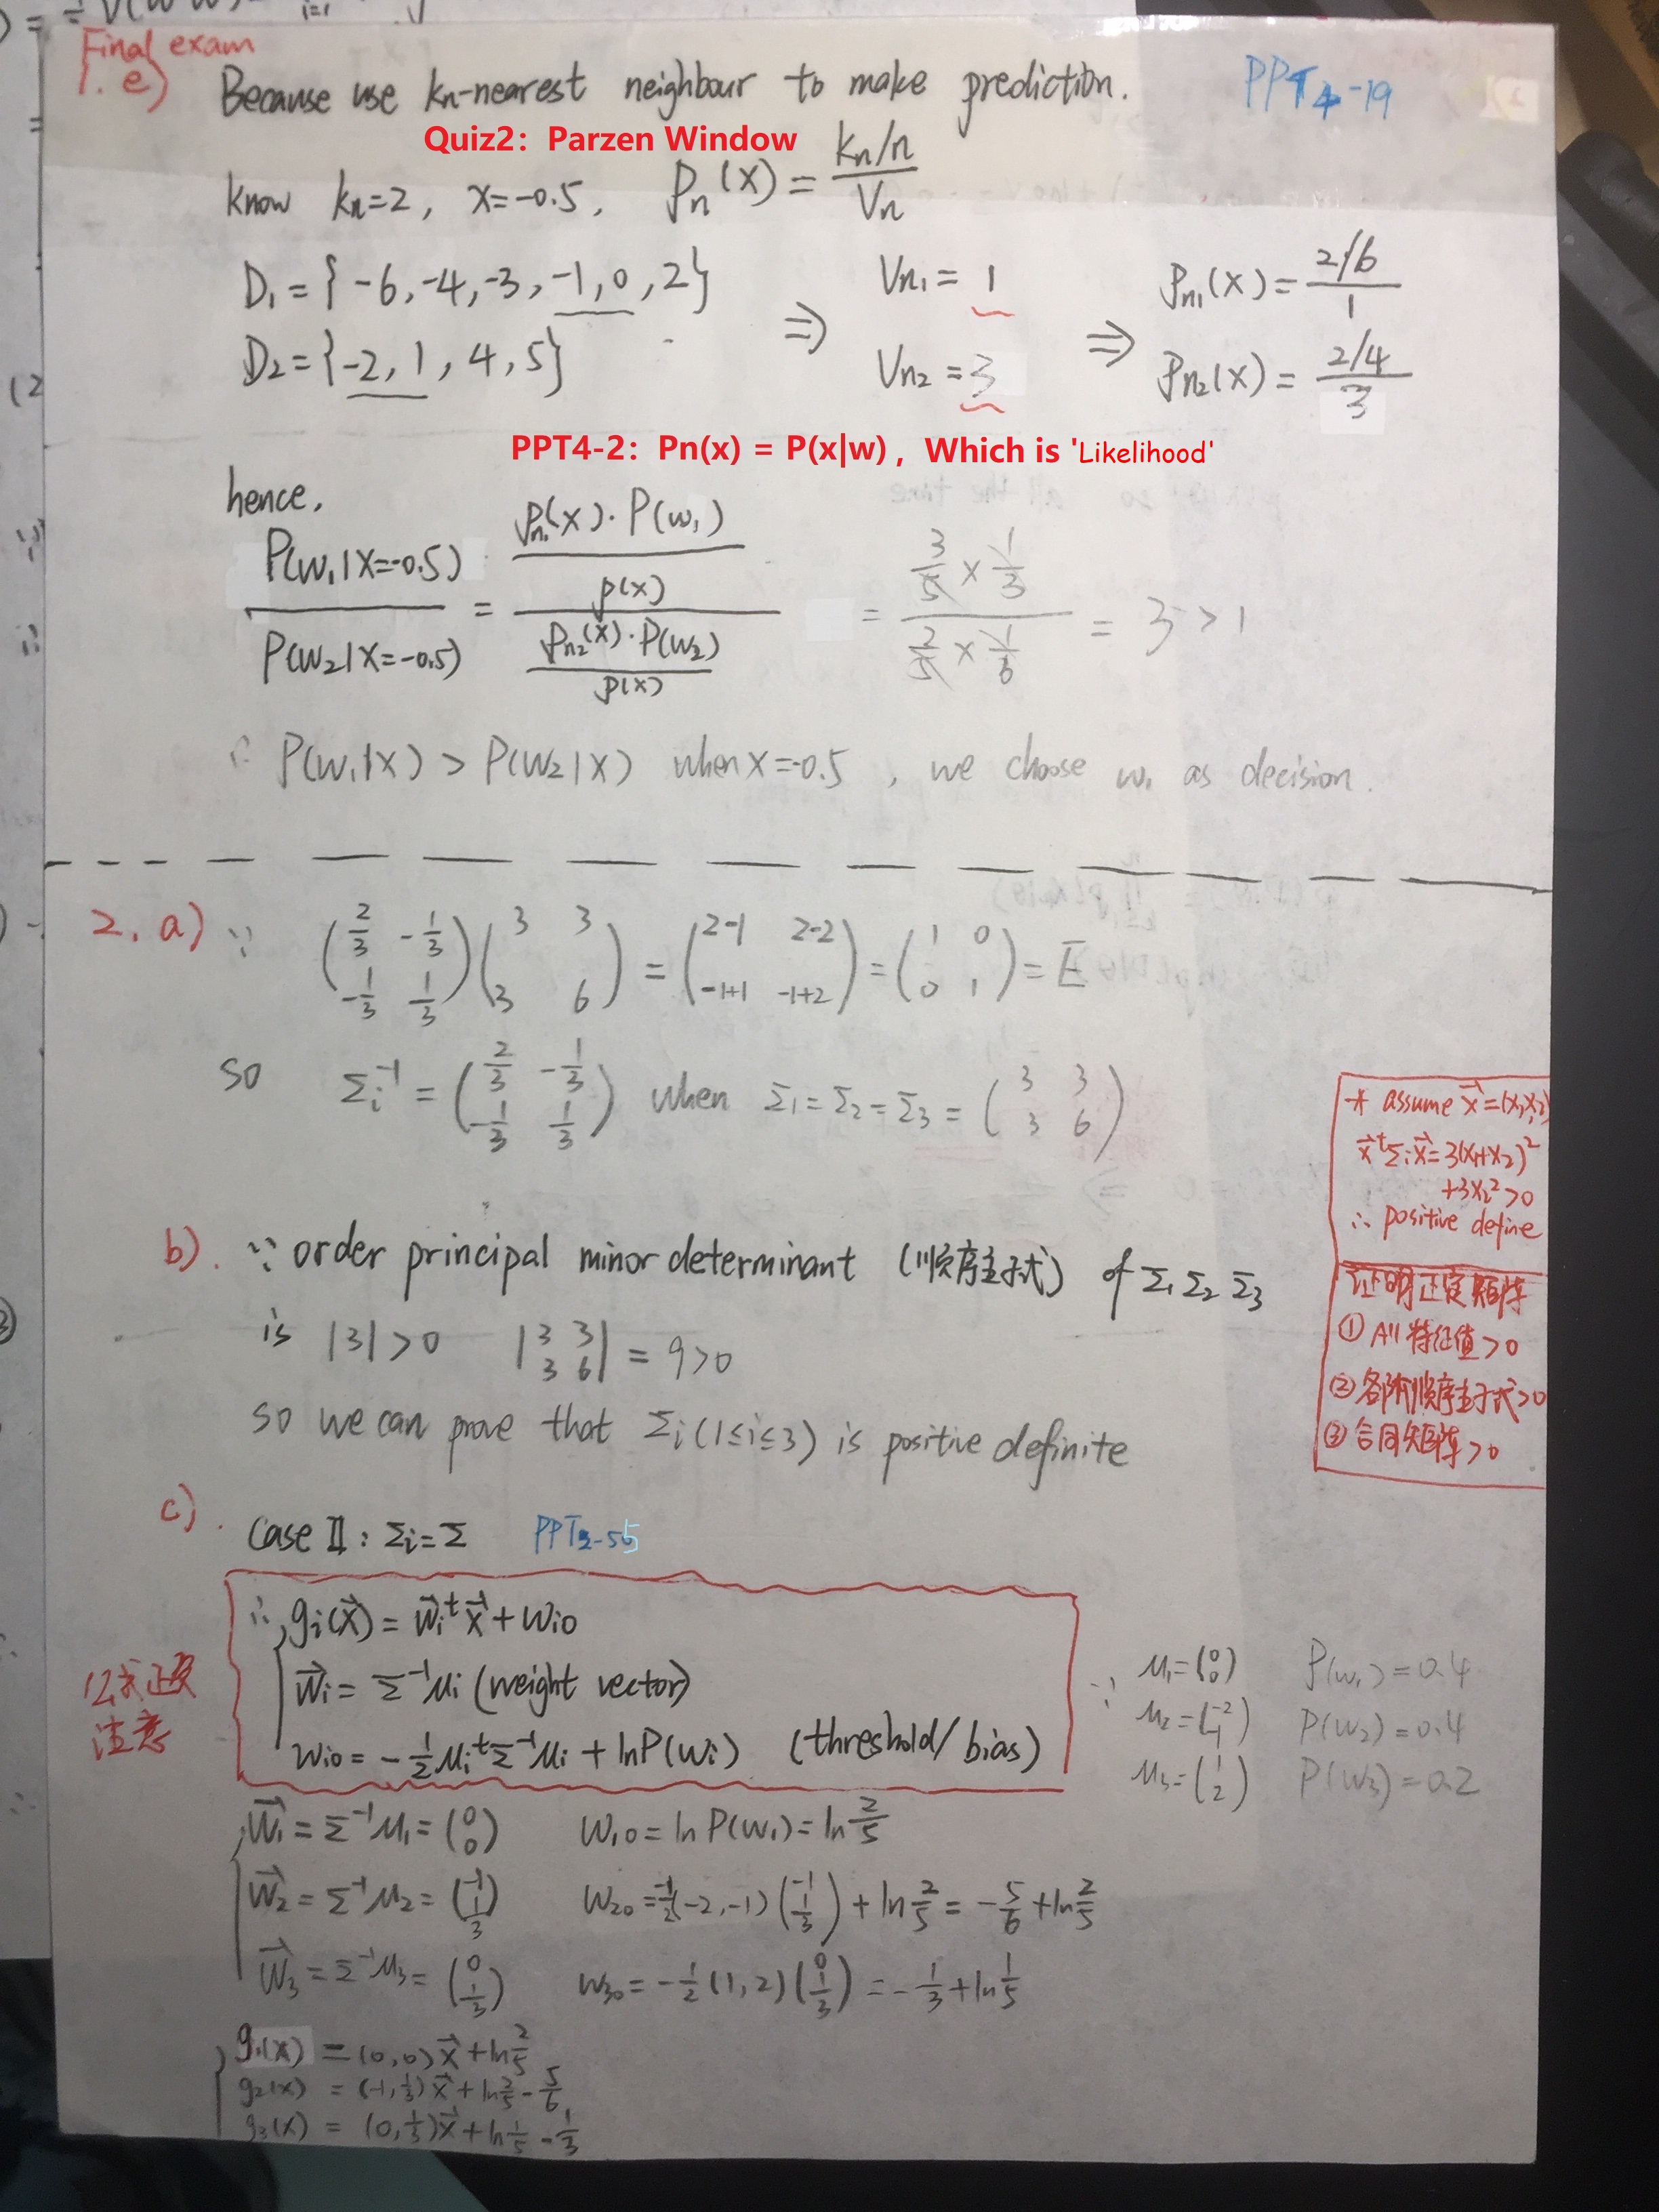 Final exam
1. e) Because use kn-nearest neighbour to make prediction. PPT4-19
Quiz2：Parzen Window
know kn=2, x=-0.5, Pn(x) = (kn/n)/Vn
D1 = {-6, -4, -3, -1, 0, 2} ⇒ Vn1 = 1 ⇒ Pn1(x) = (2/6)/1
D2 = {-2, 1, 4, 5} Vn2 = 3 Pn2(x) = (2/4)/3
PPT4-2：Pn(x) = P(x|w)，Which is 'Likelihood'
hence,
P(w1|x=-0.5)/P(w2|x=-0.5) = (Pn1(x)·P(w1)/p(x))/(Pn2(x)·P(w2)/p(x)) = (3/5 × 1/3)/(2/5 × 1/6) = 3 > 1
∴ P(w1|x) > P(w2|x) when x=-0.5, we choose w1 as decision.
2. a) ∵ (2/3 -1/3; -1/3 1/3)(3 3; 3 6) = (2-1 2-2; -1+1 -1+2) = (1 0; 0 1) = E
so Σi⁻¹ = (2/3 -1/3; -1/3 1/3) when Σ1=Σ2=Σ3 = (3 3; 3 6)
* assume x⃗=(x1,x2)
x⃗ᵗΣix⃗=3(x1+x2)²
+3x2²>0
∴ positive define
证明正定矩阵
① All 特征值>0
② 各阶顺序主子式>0
③ 合同矩阵>0
b). ∵ order principal minor determinant (顺序主子式) of Σ1 Σ2 Σ3
is |3|>0 |3 3; 3 6| = 9>0
so we can prove that Σi (1≤i≤3) is positive definite
c). Case II : Σi=Σ PPT2-55
∴ gi(x⃗) = w⃗iᵗx⃗ + wi0
w⃗i = Σ⁻¹μi (weight vector)
wi0 = -1/2 μiᵗΣ⁻¹μi + lnP(wi) (threshold/bias)
注意
∵ μ1=(0; 0) P(w1)=0.4
μ2=(-2; -1) P(w2)=0.4
μ3=(1; 2) P(w3)=0.2
w⃗1 = Σ⁻¹μ1 = (0; 0) w10 = ln P(w1) = ln 2/5
w⃗2 = Σ⁻¹μ2 = (-1; 1/3) w20 = -1/2(-2,-1)(-1; 1/3) + ln 2/5 = -5/6 + ln 2/5
w⃗3 = Σ⁻¹μ3 = (0; 1/3) w30 = -1/2 (1,2)(0; 1/3) = -1/3 + ln 1/5
g1(x) = (0,0)x⃗ + ln 2/5
g2(x) = (-1,1/3)x⃗ + ln 2/5 - 5/6
g3(x) = (0,1/3)x⃗ + ln 1/5 - 1/3